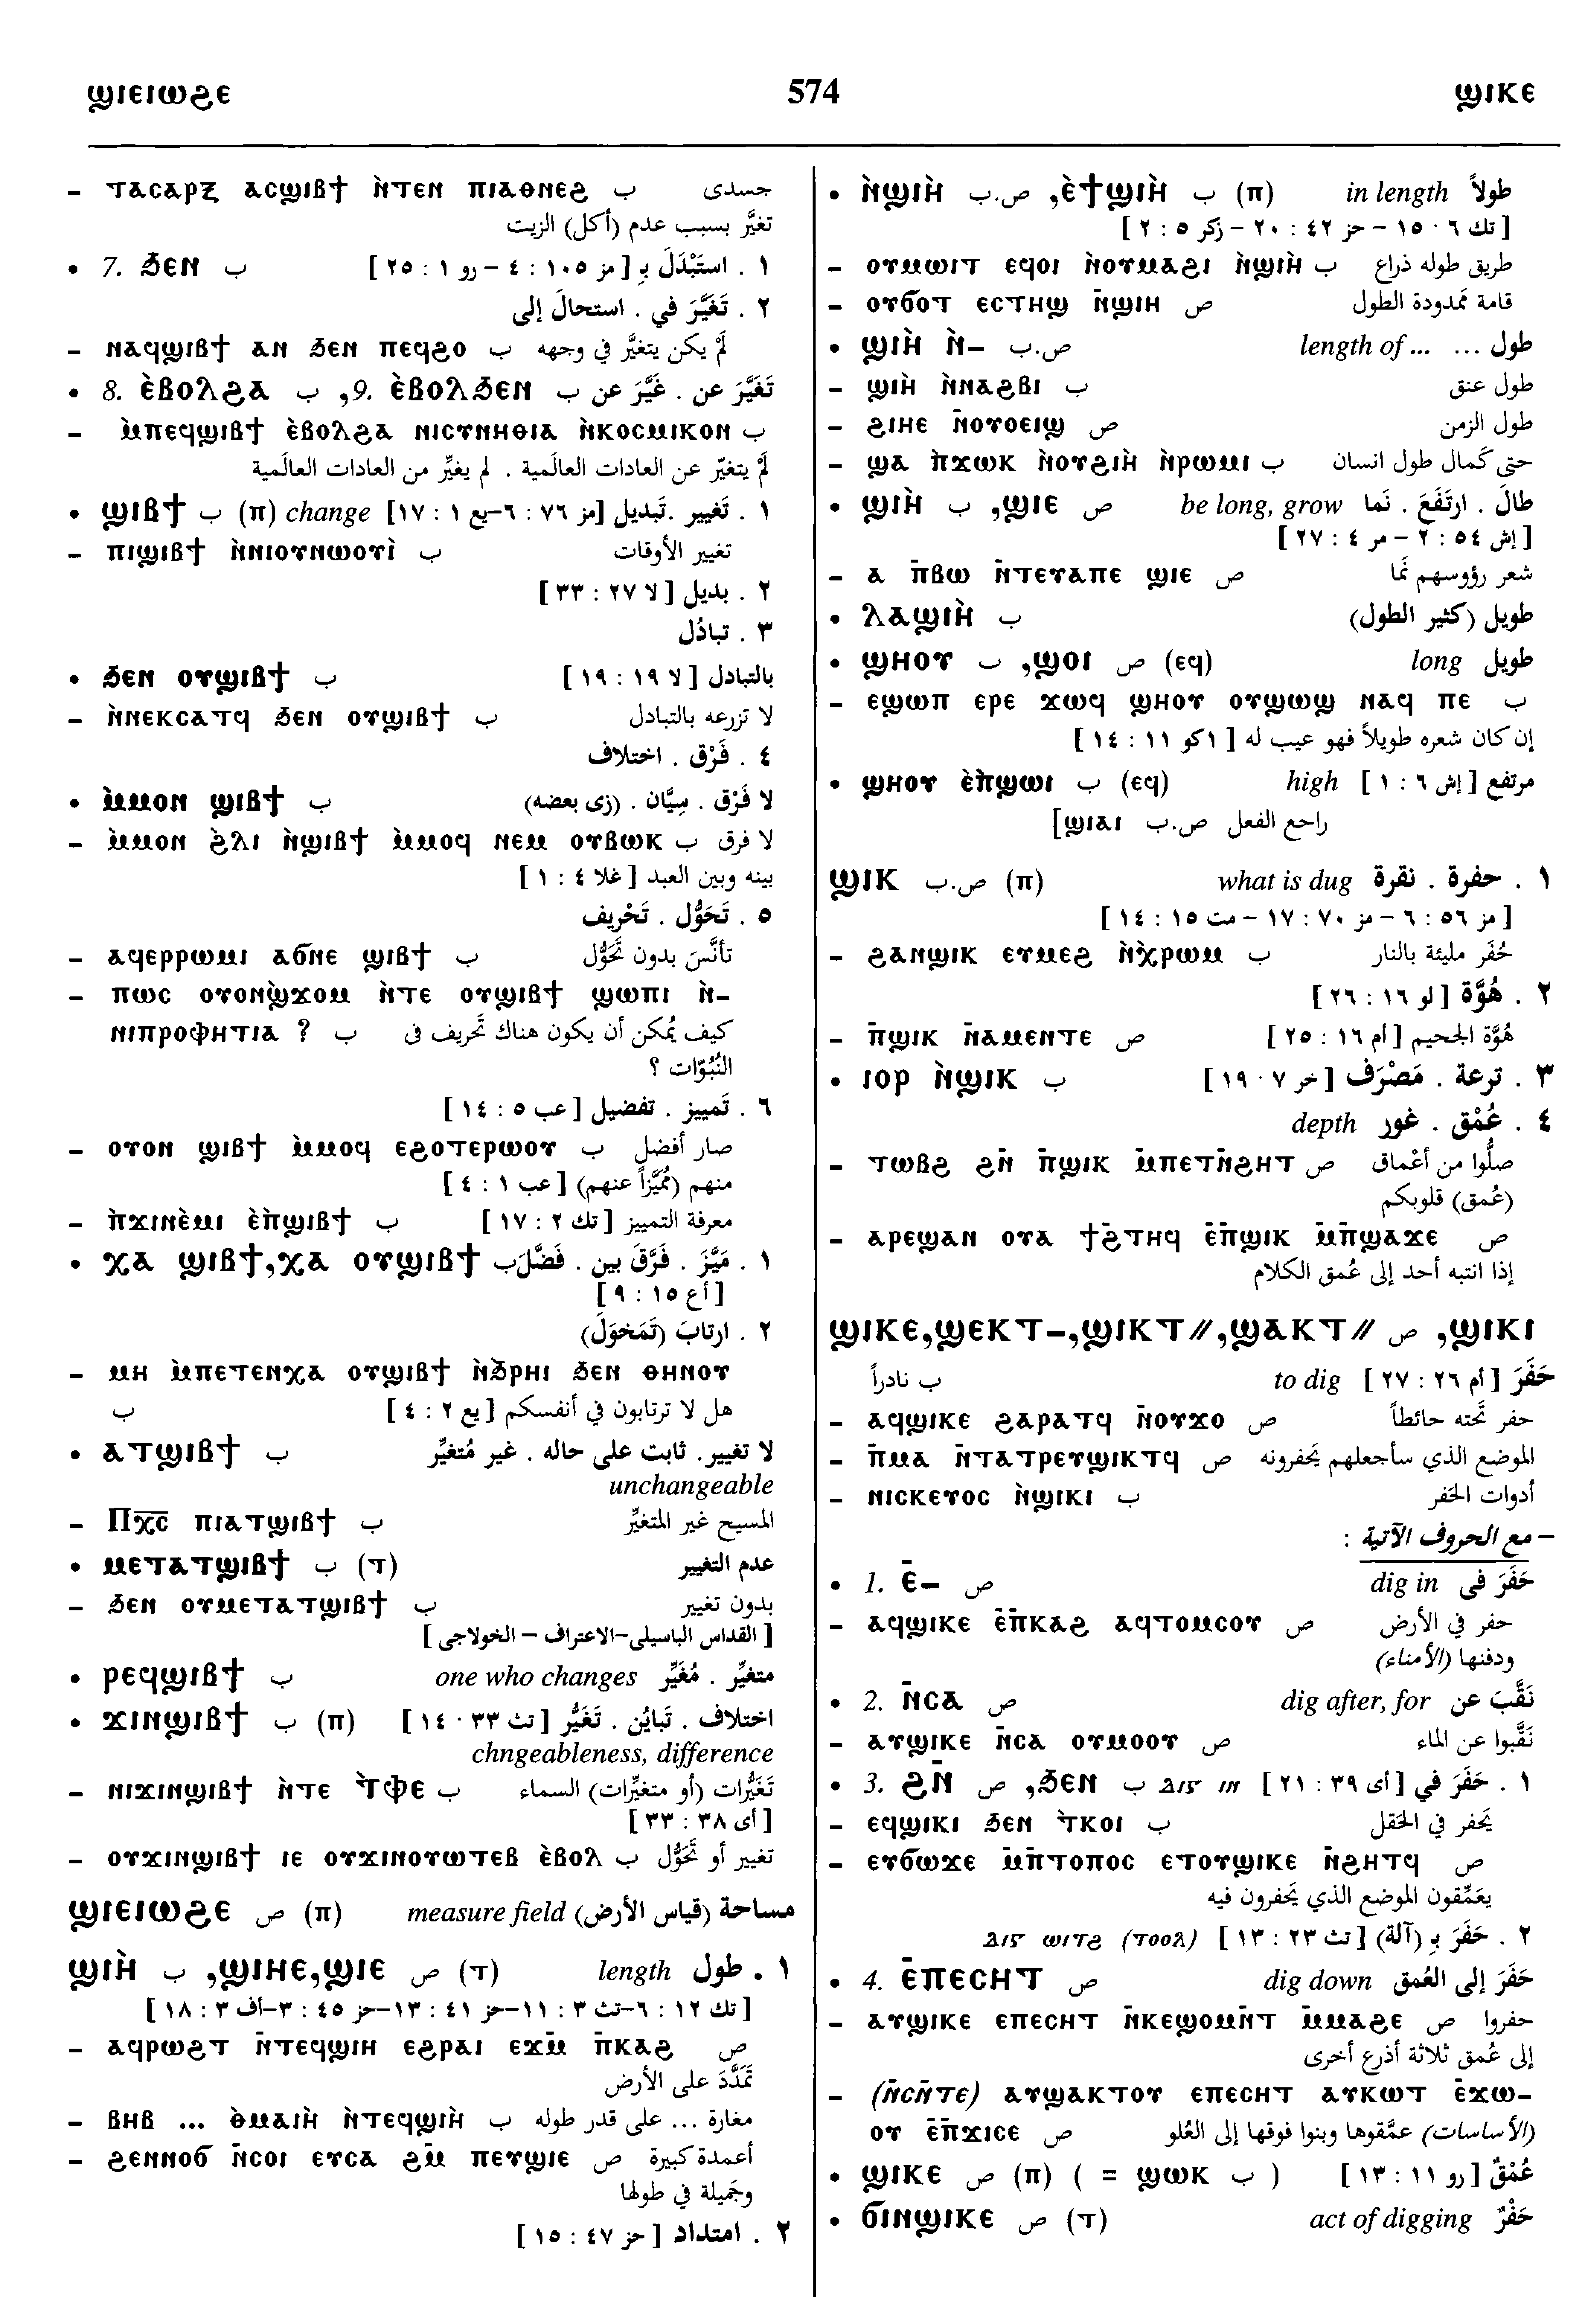 ϣⲓⲉⲓⲱϩⲉ 574 ϣⲓⲕⲉ
– ⲧⲁⲥⲁⲣⲝ ⲁⲥϣⲓⲃϯ ⲛ̀ⲧⲉⲛ ⲡⲓⲁⲑⲛⲉϩ ب جسدى
تغيَّر بسبب عدم (أكل) الزيت
• 7. ϧⲉⲛ ب ١ . استَبْدَلَ بِـ [مز ١٠٥ : ٤ – رو ١ : ٢٥]
٢ . تَغَيَّرَ في . استحالَ إلى
– ⲛⲁϥϣⲓⲃϯ ⲁⲛ ϧⲉⲛ ⲡⲉϥϩⲟ ب لَمْ يكن يتغيَّر في وجهه
• 8. ⲉ̀ⲃⲟⲗϩⲁ ب ,9. ⲉ̀ⲃⲟⲗϧⲉⲛ ب تَغَيَّرَ عن . غَيَّرَ عن
– ⲙ̀ⲡⲉϥϣⲓⲃϯ ⲉ̀ⲃⲟⲗϩⲁ ⲛⲓⲥⲩⲛⲏⲑⲓⲁ ⲛ̀ⲕⲟⲥⲙⲓⲕⲟⲛ ب
لَمْ يتغيّر عن العادات العالَمية . لم يغيِّر من العادات العالَمية
• ϣⲓⲃϯ ب (ⲡ) change ١ . تغيير .تبديل [مز ٧٦ : ٦–يع ١ : ١٧]
– ⲡⲓϣⲓⲃϯ ⲛ̀ⲛⲓⲟⲩⲛⲱⲟⲩⲓ̀ ب تغيير الأوقات
٢ . بديل [لا ٢٧ : ٣٣]
٣ . تبادُل
• ϧⲉⲛ ⲟⲩϣⲓⲃϯ ب بالتبادل [لا ١٩ : ١٩]
– ⲛ̀ⲛⲉⲕⲥⲁⲧϥ ϧⲉⲛ ⲟⲩϣⲓⲃϯ ب لا تزرعه بالتبادل
٤ . فَرْق . اختلاف
• ⲙ̀ⲙⲟⲛ ϣⲓⲃϯ ب لا فَرْق . سِيَّان . (زى بعضه)
– ⲙ̀ⲙⲟⲛ ϩ̀ⲗⲓ ⲛ̀ϣⲓⲃϯ ⲙ̀ⲙⲟϥ ⲛⲉⲙ ⲟⲩⲃⲱⲕ ب لا فرق
بينه وبين العبد [غلا ٤ : ١]
٥ . تَحَوُّل . تَحْريف
– ⲁϥⲉⲣⲣⲱⲙⲓ ⲁϭⲛⲉ ϣⲓⲃϯ ب تأنَّسَ بدون تَحَوُّل
– ⲡⲱⲥ ⲟⲩⲟⲛϣ̀ϫⲟⲙ ⲛ̀ⲧⲉ ⲟⲩϣⲓⲃϯ ϣⲱⲡⲓ ⲛ̀–
ⲛⲓⲡⲣⲟⲫⲏⲧⲓⲁ ? ب كيف يُمكن أن يكون هناك تَحريف فى
النُبُوّات ؟
٦ . تَمييز . تفضيل [عب ٥ : ١٤]
– ⲟⲩⲟⲛ ϣⲓⲃϯ ⲙ̀ⲙⲟϥ ⲉϩⲟⲧⲉⲣⲱⲟⲩ ب صار أفضل
منهم (مُمَيَّزاً عنهم) [عب ١ : ٤]
– ⲛ̀ϫⲓⲛⲉ̀ⲙⲓ ⲉ̀ⲡ̀ϣⲓⲃϯ ب معرفة التمييز [تك ٢ : ١٧]
• ⲭⲁ ϣⲓⲃϯ,ⲭⲁ ⲟⲩϣⲓⲃϯ ب ١ . مَيَّزَ . فَرَّقَ بين . فَضَّلَ
[أع ١٥ : ٩]
٢ . ارتابَ (تَمَخوَلَ)
– ⲙⲏ ⲙ̀ⲡⲉⲧⲉⲛⲭⲁ ⲟⲩϣⲓⲃϯ ⲛ̀ϧ̀ⲣⲏⲓ ϧⲉⲛ ⲑⲏⲛⲟⲩ
ب هل لا ترتابون في أنفسكم [يع ٢ : ٤]
• ⲁⲧϣⲓⲃϯ ب لا تغيير. ثابت على حاله . غير مُتغيِّر
unchangeable
– Ⲡⲭ̅ⲥ̅ ⲡⲓⲁⲧϣⲓⲃϯ ب المسيح غير المتغيِّر
• ⲙⲉⲧⲁⲧϣⲓⲃϯ ب (ⲧ) عدم التغيير
– ϧⲉⲛ ⲟⲩⲙⲉⲧⲁⲧϣⲓⲃϯ ب بدون تغيير
[القداس الباسيلى–الاعتراف – الخولاجى]
• ⲣⲉϥϣⲓⲃϯ ب one who changes متغيِّر . مُغَيِّر
• ϫⲓⲛϣⲓⲃϯ ب (ⲡ) اختلاف . تَبايُن . تَغَيُّر [تث ٣٣ ٠ ١٤]
chngeableness, difference
– ⲛⲓϫⲓⲛϣⲓⲃϯ ⲛ̀ⲧⲉ ⲧ̀ⲫⲉ ب تَغَيُّرات (أو متغيِّرات) السماء
[أى ٣٨ : ٣٣]
– ⲟⲩϫⲓⲛϣⲓⲃϯ ⲓⲉ ⲟⲩϫⲓⲛⲟⲩⲱⲧⲉⲃ ⲉ̀ⲃⲟⲗ ب تغيير أو تَحَوُّل
ϣⲓⲉⲓⲱϩⲉ ص (ⲡ) measure field مساحة (قياس الأرض)
ϣⲓⲏ̀ ب ,ϣⲓⲏⲉ,ϣⲓⲉ ص (ⲧ) length ١ . طول
[تك ١٢ : ٦–تث ٣ : ١١–حز ٤١ : ١٣–حز ٤٥ : ٣–أف ٣ : ١٨]
– ⲁϥⲣⲱϩⲧ ⲛ̄ⲧⲉϥϣⲓⲏ ⲉϩⲣⲁⲓ ⲉϫⲙ̄ ⲡ̄ⲕⲁϩ ص
تَمَدَّدَ على الأرض
– ⲃⲏⲃ ... ⲑ̀ⲙⲁⲓⲏ̀ ⲛ̀ⲧⲉϥϣⲓⲏ̀ ب مغارة ... على قدر طوله
– ϩⲉⲛⲛⲟϭ ⲛ̄ⲥⲟⲓ ⲉⲩⲥⲁ ϩⲙ̄ ⲡⲉⲩϣⲓⲉ ص أعمدة كبيرة
وجَميلة في طولها
٢ . امتداد [حز ٤٧ : ١٥]
• ⲛ̀ϣⲓⲏ̀ ص.ب ,ⲉ̀ϯϣⲓⲏ̀ ب (ⲡ) in length طولاً
[تك ٦ ٠ ١٥ – حز ٤٢ : ٢٠ – زكر ٥ : ٢]
– ⲟⲩⲙⲱⲓⲧ ⲉϥⲟⲓ ⲛ̀ⲟⲩⲙⲁϩⲓ ⲛ̀ϣⲓⲏ̀ ب طريق طوله ذراع
– ⲟⲩϭⲟⲧ ⲉⲥⲧⲏϣ ⲛ̄ϣⲓⲏ ص قامة مَمدودة الطول
• ϣⲓⲏ̀ ⲛ̀– ص.ب length of ... طول ...
– ϣⲓⲏ̀ ⲛ̀ⲛⲁϩⲃⲓ ب طول عنق
– ϩⲓⲏⲉ ⲛ̄ⲟⲩⲟⲉⲓϣ ص طول الزمن
– ϣⲁ ⲡ̀ϫⲱⲕ ⲛ̀ⲟⲩϩⲓⲏ̀ ⲛ̀ⲣⲱⲙⲓ ب حتى كَمال طول انسان
• ϣⲓⲏ̀ ب ,ϣⲓⲉ ص be long, grow طالَ . ارتَفَعَ . نَما
[إش ٥٤ : ٢ – مر ٤ : ٢٧]
– ⲁ ⲡ̄ⲃⲱ ⲛ̄ⲧⲉⲩⲁⲡⲉ ϣⲓⲉ ص شعر رؤوسهم نَما
• ⲗⲁϣⲓⲏ̀ ب طويل (كثير الطول)
• ϣⲏⲟⲩ ب ,ϣⲟⲓ ص (ⲉϥ) long طويل
– ⲉϣⲱⲡ ⲉⲣⲉ ϫⲱϥ ϣⲏⲟⲩ ⲟⲩϣⲱϣ ⲛⲁϥ ⲡⲉ ب
إن كان شعره طويلاً فهو عيب له [١كو ١١ : ١٤]
• ϣⲏⲟⲩ ⲉ̀ⲡ̀ϣⲱⲓ ب (ⲉϥ) high مرتفع [إش ٦ : ١]
راجع الفعل ص.ب ϣⲓⲁⲓ]
ϣⲓⲕ ص.ب (ⲡ) what is dug ١ . حفرة . نقرة
[مز ٥٦ : ٦ – مز ٧٠ : ١٧ – مت ١٥ : ١٤]
– ϩⲁⲛϣⲓⲕ ⲉⲩⲙⲉϩ ⲛ̀ⲭ̀ⲣⲱⲙ ب حُفَر مليئة بالنار
٢ . هُوَّة [لو ١٦ : ٢٦]
– ⲡ̄ϣⲓⲕ ⲛ̄ⲁⲙⲉⲛⲧⲉ ص هُوَّة الجحيم [أم ١٦ : ٢٥]
• ⲓⲟⲣ ⲛ̀ϣⲓⲕ ب ٣ . ترعة . مَصْرَف [خر ٧ ٠ ١٩]
٤ . عُمْق . غور depth
– ⲧⲱⲃϩ ϩⲛ̄ ⲡ̄ϣⲓⲕ ⲙ̄ⲡⲉⲧⲛ̄ϩⲏⲧ ص صلُّوا من أعْماق
(عُمق) قلوبكم
– ⲁⲣⲉϣⲁⲛ ⲟⲩⲁ ϯϩ̄ⲧⲏϥ ⲉ̄ⲡ̄ϣⲓⲕ ⲙ̄ⲡ̄ϣⲁϫⲉ ص
إذا انتبه أحد إلى عُمق الكلام
ϣⲓⲕⲉ,ϣⲉⲕⲧ–,ϣⲓⲕⲧ//,ϣⲁⲕⲧ// ص ,ϣⲓⲕⲓ
ب نادراً to dig حَفَرَ [أم ٢٦ : ٢٧]
– ⲁϥϣⲓⲕⲉ ϩⲁⲣⲁⲧϥ ⲛ̄ⲟⲩϫⲟ ص حفر تَحته حائطاً
– ⲡ̄ⲙⲁ ⲛ̄ⲧⲁⲧⲣⲉⲩϣⲓⲕⲧϥ ص الموضع الذي سأجعلهم يَحفرونه
– ⲛⲓⲥⲕⲉⲩⲟⲥ ⲛ̀ϣⲓⲕⲓ ب أدوات الحَفر
– مع الحروف الآتية :
• 1. ⲉ̄– ص dig in حَفَرَ فى
– ⲁϥϣⲓⲕⲉ ⲉ̄ⲡ̄ⲕⲁϩ ⲁϥⲧⲟⲙⲥⲟⲩ ص حفر في الأرض
ودفنها (الأمناء)
• 2. ⲛ̄ⲥⲁ ص dig after, for نَقَّبَ عن
– ⲁⲩϣⲓⲕⲉ ⲛ̄ⲥⲁ ⲟⲩⲙⲟⲟⲩ ص نَقَّبوا عن الماء
• 3. ϩⲛ̄ ص ,ϧⲉⲛ ب dig in ١ . حَفَرَ في [أى ٣٩ : ٢١]
– ⲉϥϣⲓⲕⲓ ϧⲉⲛ ⲧ̀ⲕⲟⲓ ب يَحفر في الحَقل
– ⲉⲩϭⲱϫⲉ ⲙ̄ⲡ̄ⲧⲟⲡⲟⲥ ⲉⲧⲟⲩϣⲓⲕⲉ ⲛ̄ϩⲏⲧϥ ص
يعَمِّقون الموضع الذي يَحفرون فيه
٢ . حَفَرَ بِـ (آلة) [تث ٢٣ : ١٣] dig with (tool)
• 4. ⲉ̄ⲡⲉⲥⲏⲧ ص dig down حَفَرَ إلى العُمق
– ⲁⲩϣⲓⲕⲉ ⲉⲡⲉⲥⲏⲧ ⲛ̄ⲕⲉϣⲟⲙⲛ̄ⲧ ⲙ̄ⲙⲁϩⲉ ص حفروا
إلى عُمق ثلاثة أذرع أخرى
– (ⲛ̄ⲥⲛ̄ⲧⲉ) ⲁⲩϣⲁⲕⲧⲟⲩ ⲉⲡⲉⲥⲏⲧ ⲁⲩⲕⲱⲧ ⲉ̄ϫⲱ–
ⲟⲩ ⲉ̄ⲡ̄ϫⲓⲥⲉ ص (الأساسات) عمَّقوها وبنوا فوقها إلى العُلو
• ϣⲓⲕⲉ ص (ⲡ) ( = ϣⲱⲕ ب ) عُمْقٌ [رو ١١ : ١٣]
• ϭⲓⲛϣⲓⲕⲉ ص (ⲧ) act of digging حَفْرٌ